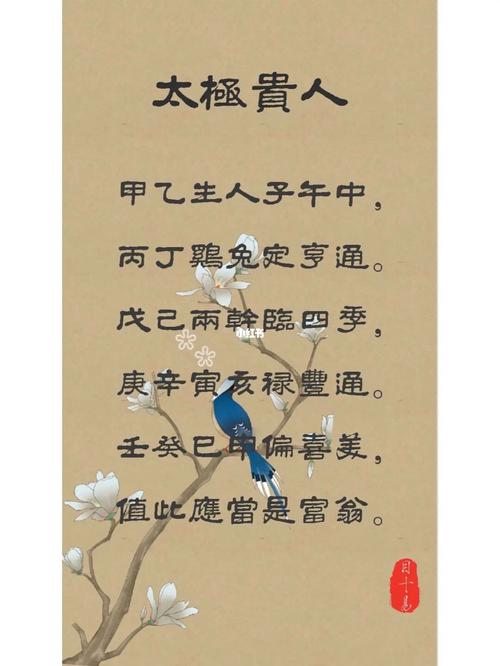 太極貴人
甲乙生人子午中，
丙丁鷄兔定亨通。
戊己兩幹臨四季，
小红书
庚辛寅亥禄豐通。
壬癸巳申偏喜美，
值此應當是富翁。